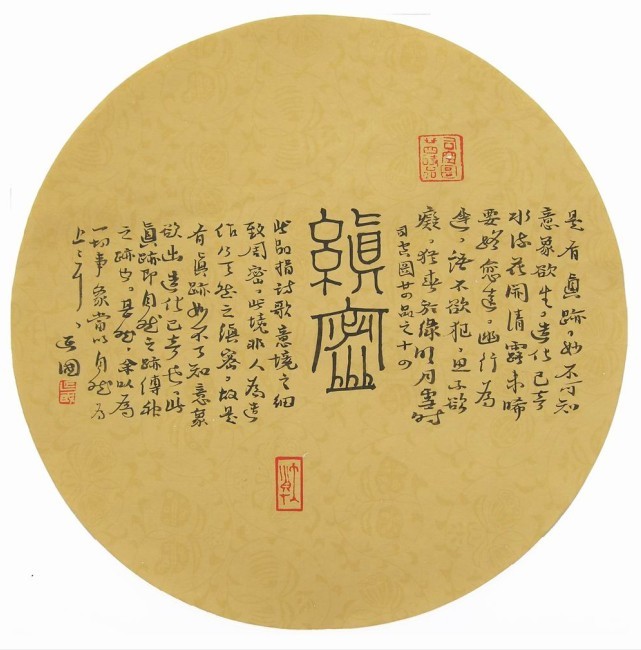 司空圖廿四詩品
是有眞跡,如不可知
意象欲生,造化已奇
水流花開清露未晞
要路愈遠,幽行為
遲,語不欲犯,思不欲
癡,猶春於綠明月雪時
司空圖廿四品之十四
縝密
此品指詩歌意境之細
致周密,此境非人為造
作乃天然之縝密,故是
有眞跡如不可知意象
欲出造化已奇也,此
眞跡即自然之跡傳神
之跡也。是然,余以為
一切事象當以自然為
上上耳,